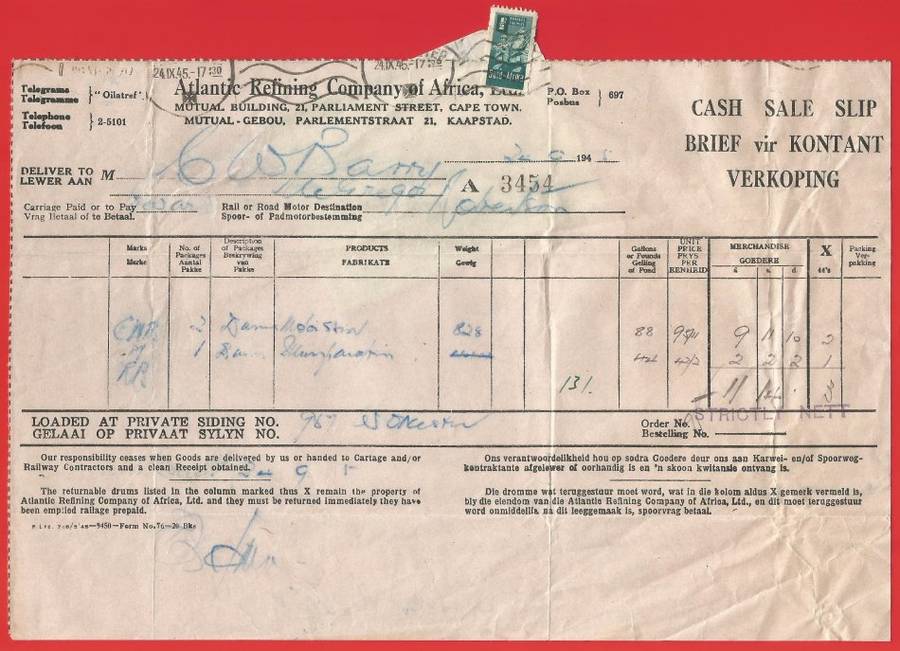 24.IX.45.-17 30 24.IX.45.-17 30
Telegrams
Telegramme } "Oilatref".
Telephone
Telefoon } 2-5101
Atlantic Refining Company of Africa, Ltd.
MUTUAL BUILDING, 21, PARLIAMENT STREET, CAPE TOWN.
MUTUAL-GEBOU, PARLEMENTSTRAAT 21, KAAPSTAD.
P.O. Box
Posbus } 697
CASH SALE SLIP
BRIEF vir KONTANT
VERKOPING
24 9 1945
DELIVER TO
LEWER AAN } M C W Barry
McGregor
A 3454
Carriage Paid or to Pay
Vrag Betaal of te Betaal.
Rail or Road Motor Destination
Spoor- of Padmotorbestemming
Robertson
Marks
Merke
No. of Packages
Aantal Pakke
Description of Packages
Beskrywing van Pakke
PRODUCTS
FABRIKATE
Weight
Gewig
Gallons or Pounds
Gelling of Pond
UNIT PRICE
PRYS PER EENHEID
MERCHANDISE
GOEDERE
£ s. d.
X
44's
Packing
Verpakking
CWB 2 828 88 9 11 10 2
1 44 2 2 2 1
RR
131. 11 14 3
STRICTLY NETT
LOADED AT PRIVATE SIDING NO. 987
GELAAI OP PRIVAAT SYLYN NO.
Order No.
Bestelling No.
Our responsibility ceases when Goods are delivered by us or handed to Cartage and/or
Railway Contractors and a clean Receipt obtained.
24 9 5
Ons verantwoordelikheid hou op sodra Goedere deur ons aan Karwei- en/of Spoorweg-
kontraktante afgelewer of oorhandig is en 'n skoon kwitansie ontvang is.
The returnable drums listed in the column marked thus X remain the property of
Atlantic Refining Company of Africa, Ltd. and they must be returned immediately they have
been emptied railage prepaid.
Die dromme wat teruggestuur moet word, wat in die kolom aldus X gemerk vermeld is,
bly die eiendom van die Atlantic Refining Company of Africa, Ltd., en dit moet teruggestuur
word onmiddellik na dit leeggemaak is, spoorvrag betaal.
3450—Form No.76—20 Bks